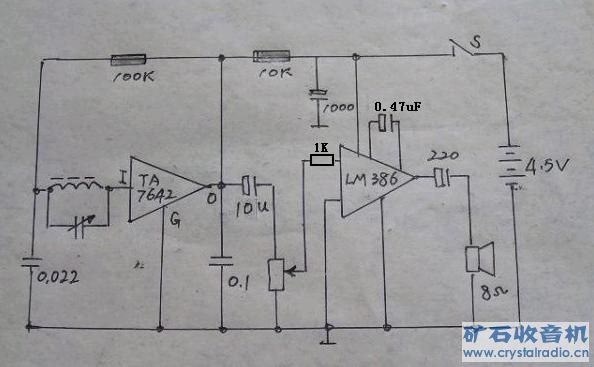 100K
10K
S
1000
0.47uF
1K
I
TA
7642
O
G
10U
LM 386
220
4.5V
0.022
0.1
8Ω
矿石收音机
www.crystalradio.cn